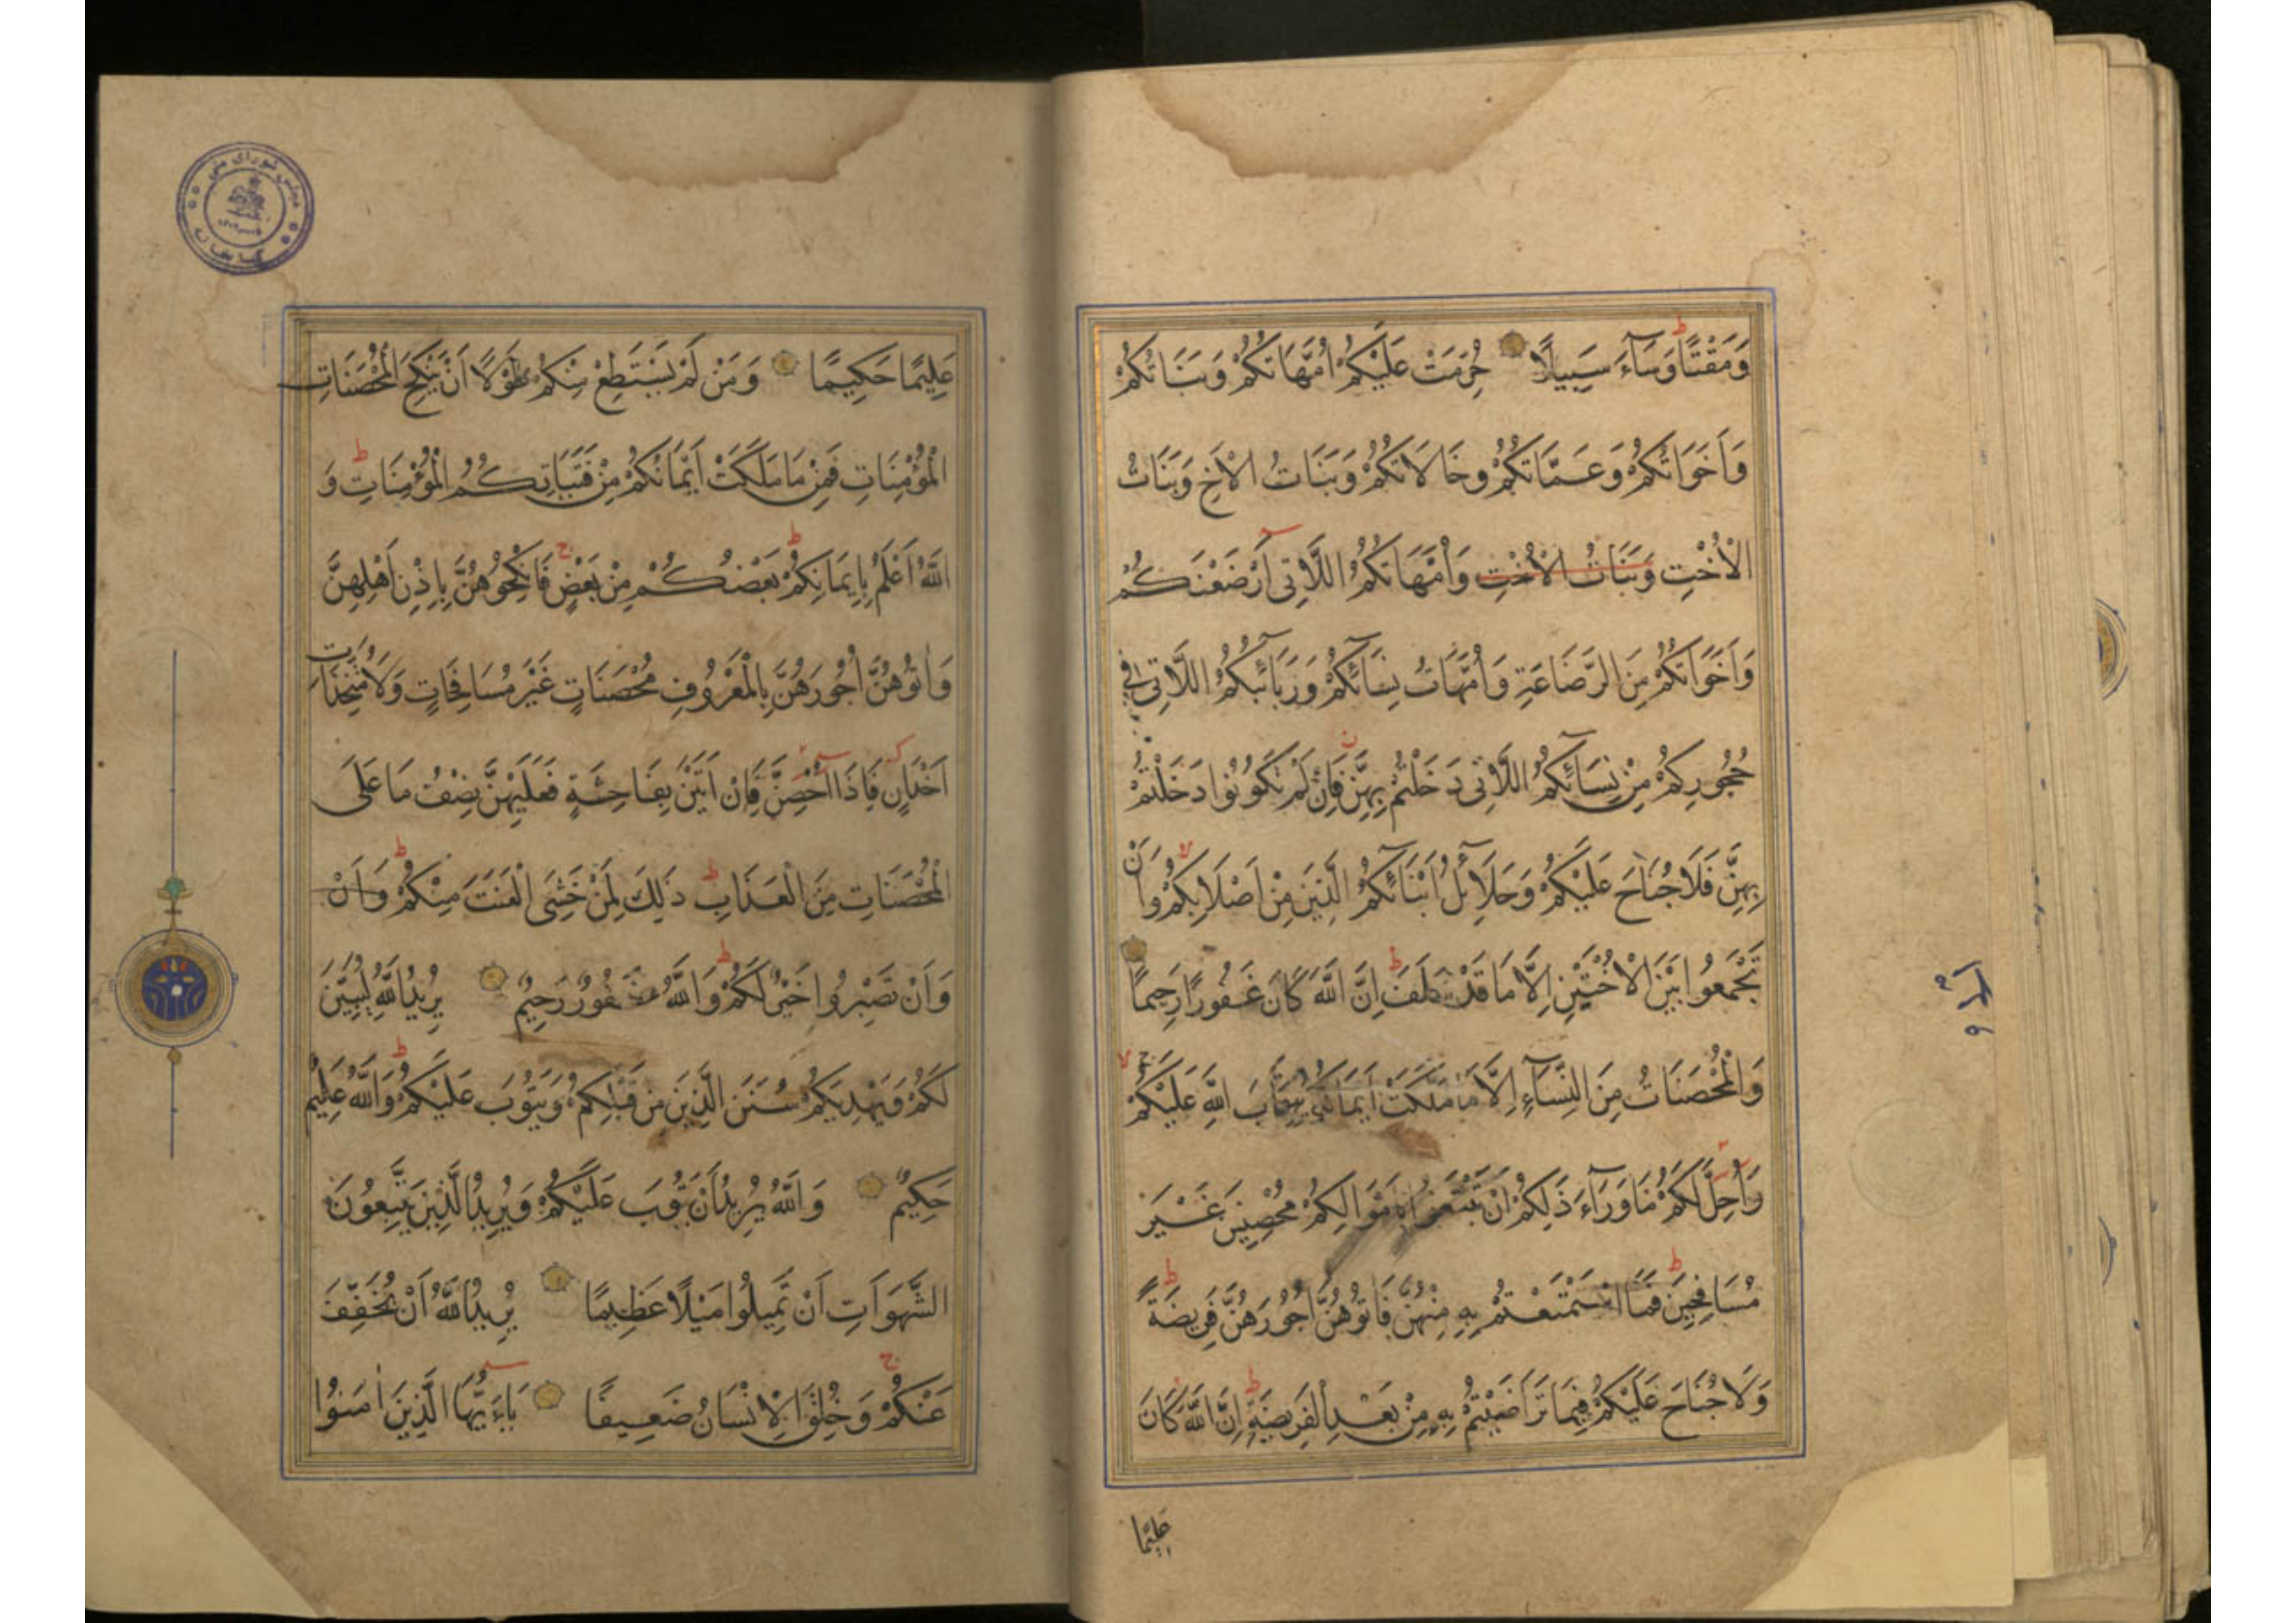 وَمَقْتًا وَسَآءَ سَبِيلًا حُرِّمَتْ عَلَيْكُمْ اُمَّهَاتُكُمْ وَبَنَاتُكُمْ
وَاَخَوَاتُكُمْ وَعَمَّاتُكُمْ وَخَالَاتُكُمْ وَبَنَاتُ الْاَخِ وَبَنَاتُ
الْاُخْتِ وَبَنَاتُ الْاُخْتِ وَاُمَّهَاتُكُمُ اللَّاتِى اَرْضَعْنَكُمْ
وَاَخَوَاتُكُمْ مِنَ الرَّضَاعَةِ وَاُمَّهَاتُ نِسَآئِكُمْ وَرَبَآئِبُكُمُ اللَّاتِى فِى
حُجُورِكُمْ مِنْ نِسَآئِكُمُ اللَّاتِى دَخَلْتُمْ بِهِنَّ فَاِنْ لَمْ تَكُونُوا دَخَلْتُمْ
بِهِنَّ فَلَا جُنَاحَ عَلَيْكُمْ وَحَلَآئِلُ اَبْنَآئِكُمُ الَّذِينَ مِنْ اَصْلَابِكُمْ وَاَنْ
تَجْمَعُوا بَيْنَ الْاُخْتَيْنِ اِلَّا مَا قَدْ سَلَفَ اِنَّ اللَّهَ كَانَ غَفُورًا رَحِيمًا
وَالْمُحْصَنَاتُ مِنَ النِّسَآءِ اِلَّا مَا مَلَكَتْ اَيْمَانُكُمْ كِتَابَ اللَّهِ عَلَيْكُمْ
وَاُحِلَّ لَكُمْ مَا وَرَآءَ ذَلِكُمْ اَنْ تَبْتَغُوا بِاَمْوَالِكُمْ مُحْصِنِينَ غَيْرَ
مُسَافِحِينَ فَمَا اسْتَمْتَعْتُمْ بِهِ مِنْهُنَّ فَاٰتُوهُنَّ اُجُورَهُنَّ فَرِيضَةً
وَلَا جُنَاحَ عَلَيْكُمْ فِيمَا تَرَاضَيْتُمْ بِهِ مِنْ بَعْدِ الْفَرِيضَةِ اِنَّ اللَّهَ كَانَ
عَلِيمًا
عَلِيمًا حَكِيمًا وَمَنْ لَمْ يَسْتَطِعْ مِنْكُمْ طَوْلًا اَنْ يَنْكِحَ الْمُحْصَنَاتِ
الْمُؤْمِنَاتِ فَمِنْ مَا مَلَكَتْ اَيْمَانُكُمْ مِنْ فَتَيَاتِكُمُ الْمُؤْمِنَاتِ وَ
اللَّهُ اَعْلَمُ بِاِيمَانِكُمْ بَعْضُكُمْ مِنْ بَعْضٍ فَانْكِحُوهُنَّ بِاِذْنِ اَهْلِهِنَّ
وَاٰتُوهُنَّ اُجُورَهُنَّ بِالْمَعْرُوفِ مُحْصَنَاتٍ غَيْرَ مُسَافِحَاتٍ وَلَا مُتَّخِذَاتِ
اَخْدَانٍ فَاِذَا اُحْصِنَّ فَاِنْ اَتَيْنَ بِفَاحِشَةٍ فَعَلَيْهِنَّ نِصْفُ مَا عَلَى
الْمُحْصَنَاتِ مِنَ الْعَذَابِ ذَلِكَ لِمَنْ خَشِىَ الْعَنَتَ مِنْكُمْ وَاَنْ
وَاَنْ تَصْبِرُوا خَيْرٌ لَكُمْ وَاللَّهُ غَفُورٌ رَحِيمٌ يُرِيدُ اللَّهُ لِيُبَيِّنَ
لَكُمْ وَيَهْدِيَكُمْ سُنَنَ الَّذِينَ مِنْ قَبْلِكُمْ وَيَتُوبَ عَلَيْكُمْ وَاللَّهُ عَلِيمٌ
حَكِيمٌ وَاللَّهُ يُرِيدُ اَنْ يَتُوبَ عَلَيْكُمْ وَيُرِيدُ الَّذِينَ يَتَّبِعُونَ
الشَّهَوَاتِ اَنْ تَمِيلُوا مَيْلًا عَظِيمًا يُرِيدُ اللَّهُ اَنْ يُخَفِّفَ
عَنْكُمْ وَخُلِقَ الْاِنْسَانُ ضَعِيفًا يَآءَيُّهَا الَّذِينَ اٰمَنُوا
مجلس شورای ملی